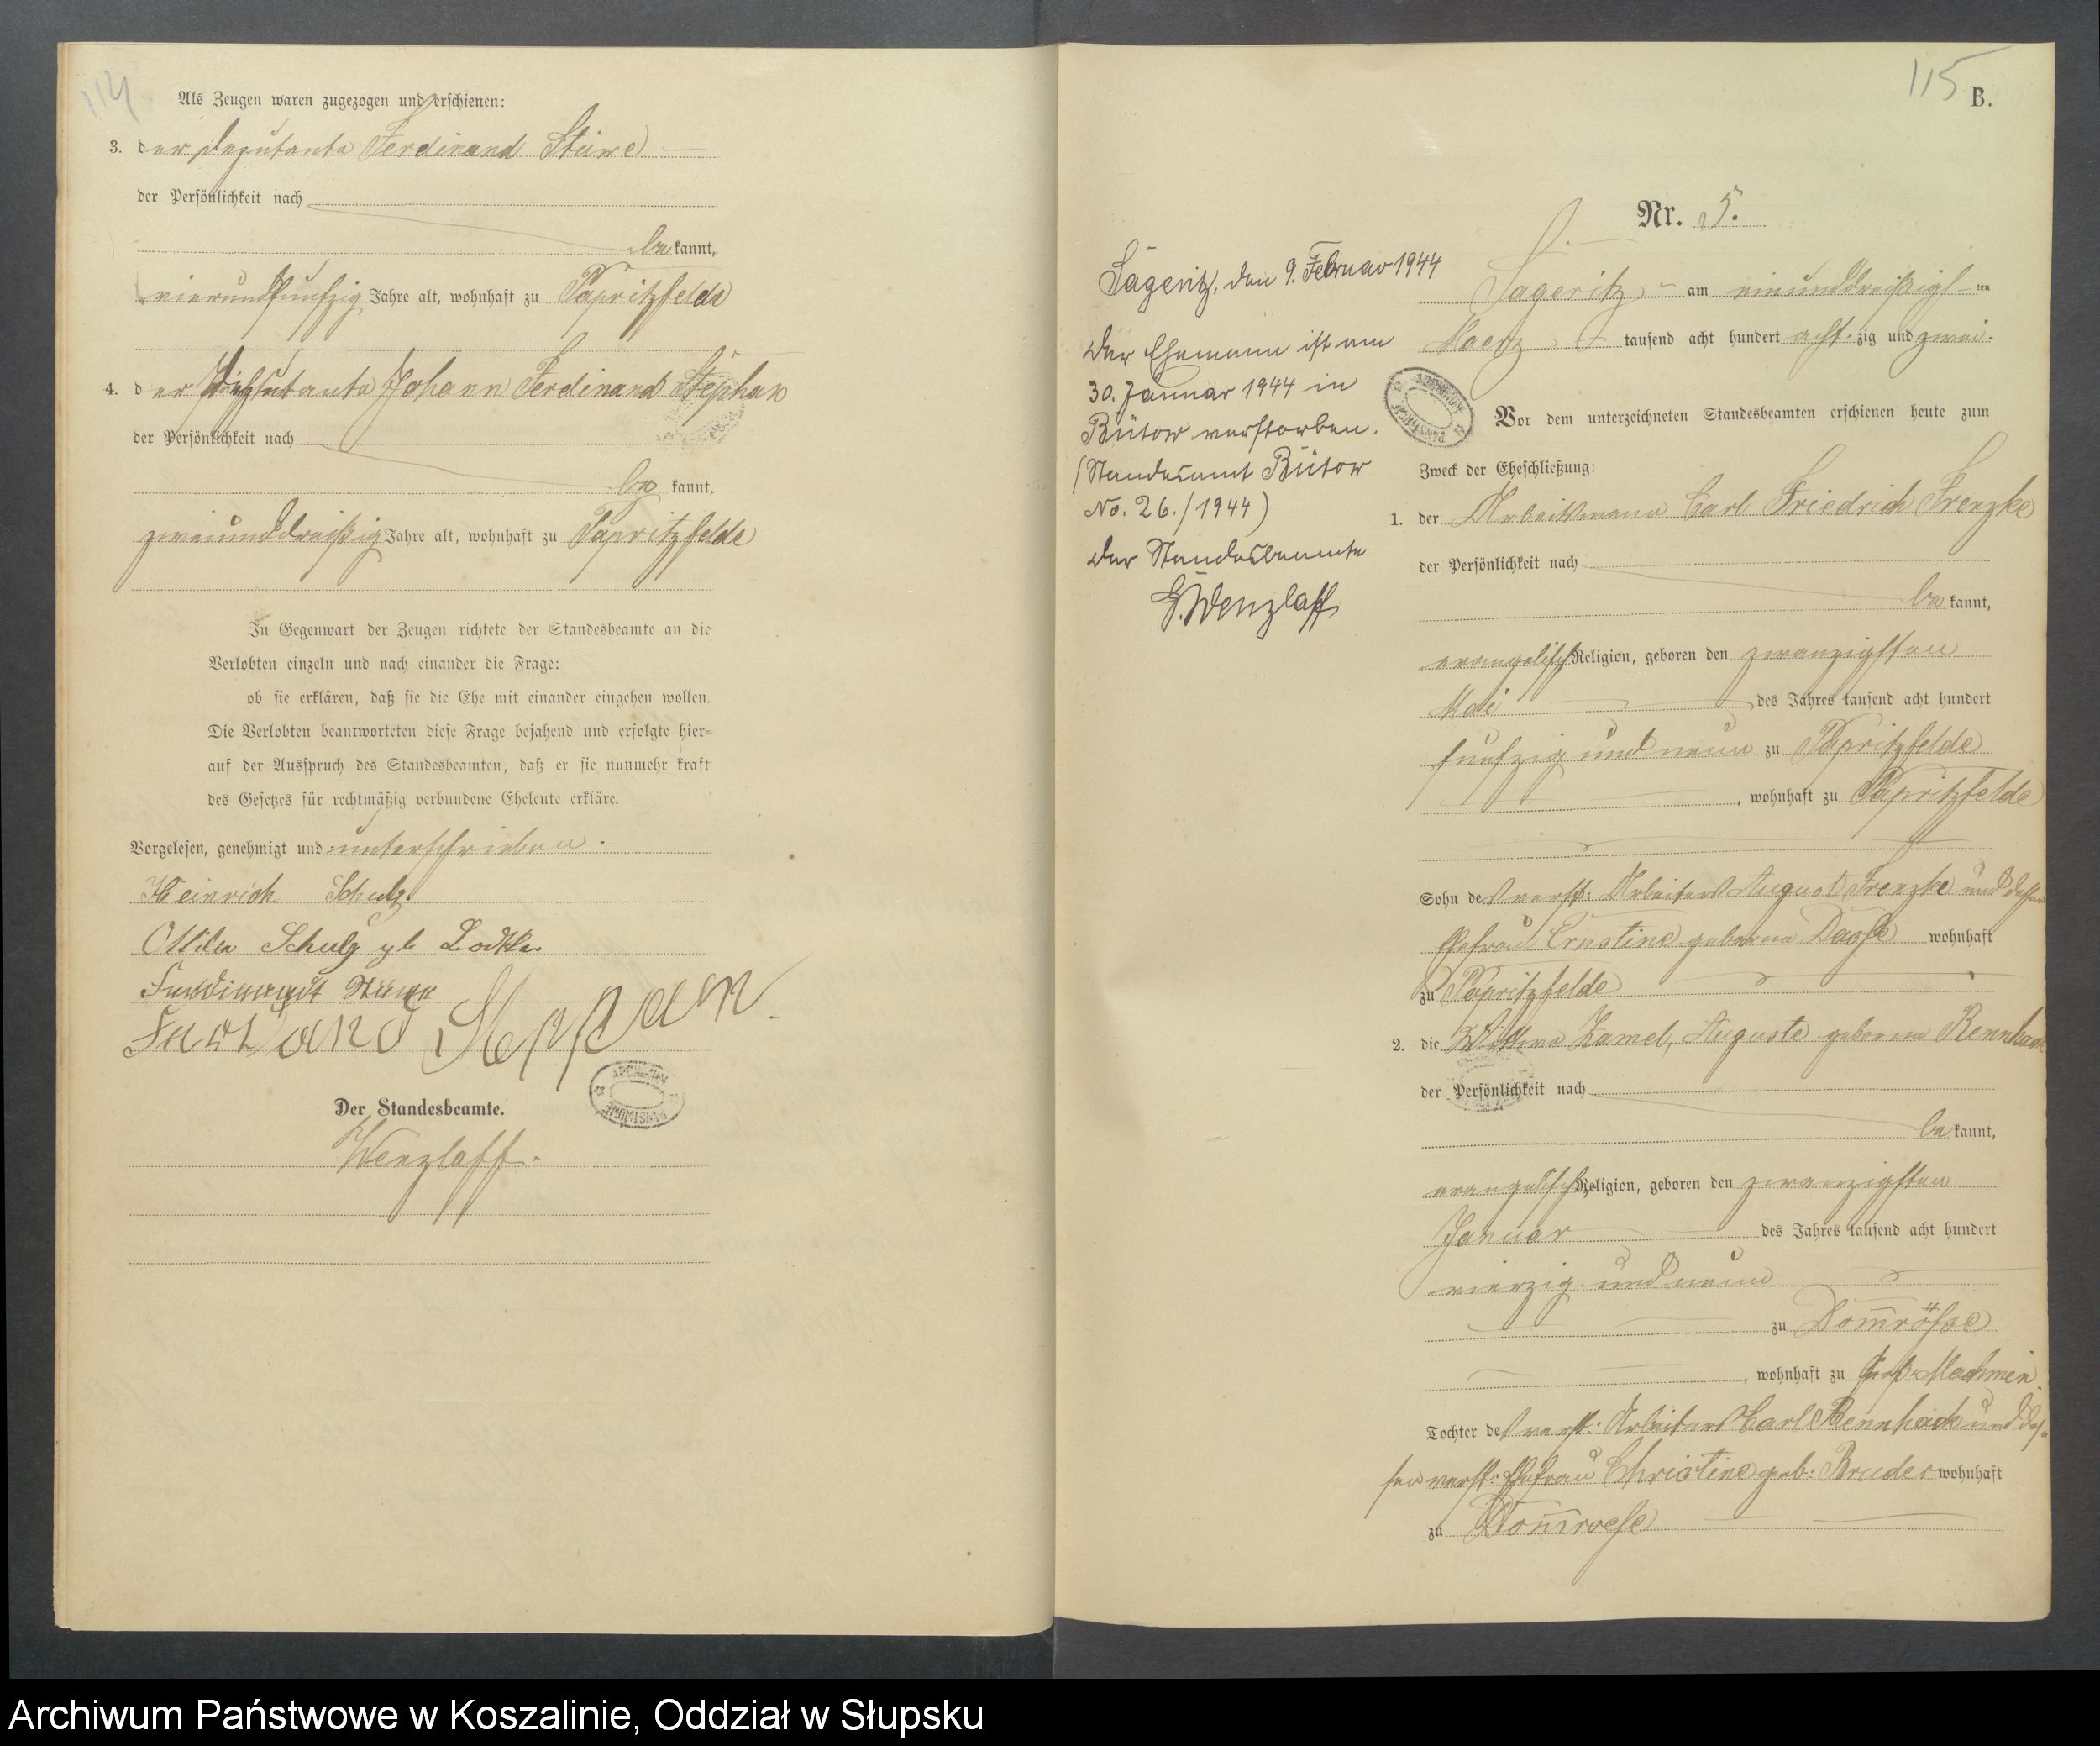 114
Als Zeugen waren zugezogen und erschienen:
3. der Deputante Ferdinand Stüwe
der Persönlichkeit nach
be kannt,
vierundfünfzig Jahre alt, wohnhaft zu Papritzfelde
4. der Deputante Johann Ferdinand Stephan
der Persönlichkeit nach
be kannt,
zweiunddreißig Jahre alt, wohnhaft zu Papritzfelde
In Gegenwart der Zeugen richtete der Standesbeamte an die
Verlobten einzeln und nach einander die Frage:
ob sie erklären, daß sie die Ehe mit einander eingehen wollen.
Die Verlobten beantworteten diese Frage bejahend und erfolgte hier-
auf der Ausspruch des Standesbeamten, daß er sie nunmehr kraft
des Gesetzes für rechtmäßig verbundene Eheleute erkläre.
Vorgelesen, genehmigt und unterschrieben.
Heinrich Schulz
Ottilie Schulz gb Lodtke
Ferdinandt Stüwe
Stephan
Der Standesbeamte.
Wenzlaff.
115
B.
Nr. 5.
Sageritz, den 9. Februar 1944
Der Ehemann ist am
30. Januar 1944 in
Bütow verstorben.
(Standesamt Bütow
No. 26./1944)
Der Standesbeamte
G. Wenzlaff
Sageritz am einunddreißigs ten
Maerz tausend acht hundert acht zig und zwei.
Vor dem unterzeichneten Standesbeamten erschienen heute zum
Zweck der Eheschließung:
1. der Arbeitsmann Carl Friedrich Frenzke
der Persönlichkeit nach
be kannt,
evangelisch Religion, geboren den zwanzigsten
Mai des Jahres tausend acht hundert
fünfzig und neun zu Papritzfelde
, wohnhaft zu Papritzfelde
Sohn des verst: Arbeiters August Frenzke und dessen
Ehefrau Ernstine geborne Dasse wohnhaft
zu Papritzfelde
2. die Wittwe Zamel, Auguste geborne Rennhack
der Persönlichkeit nach
be kannt,
evangelisch Religion, geboren den zwanzigsten
Januar des Jahres tausend acht hundert
vierzig und neun
zu Dom̄röse
, wohnhaft zu Groß Machmin
Tochter des verst: Arbeiters Carl Rennhack und des-
sen verst: Ehefrau Christine geb: Bruder wohnhaft
zu Dom̄roese
Archiwum Państwowe w Koszalinie, Oddział w Słupsku